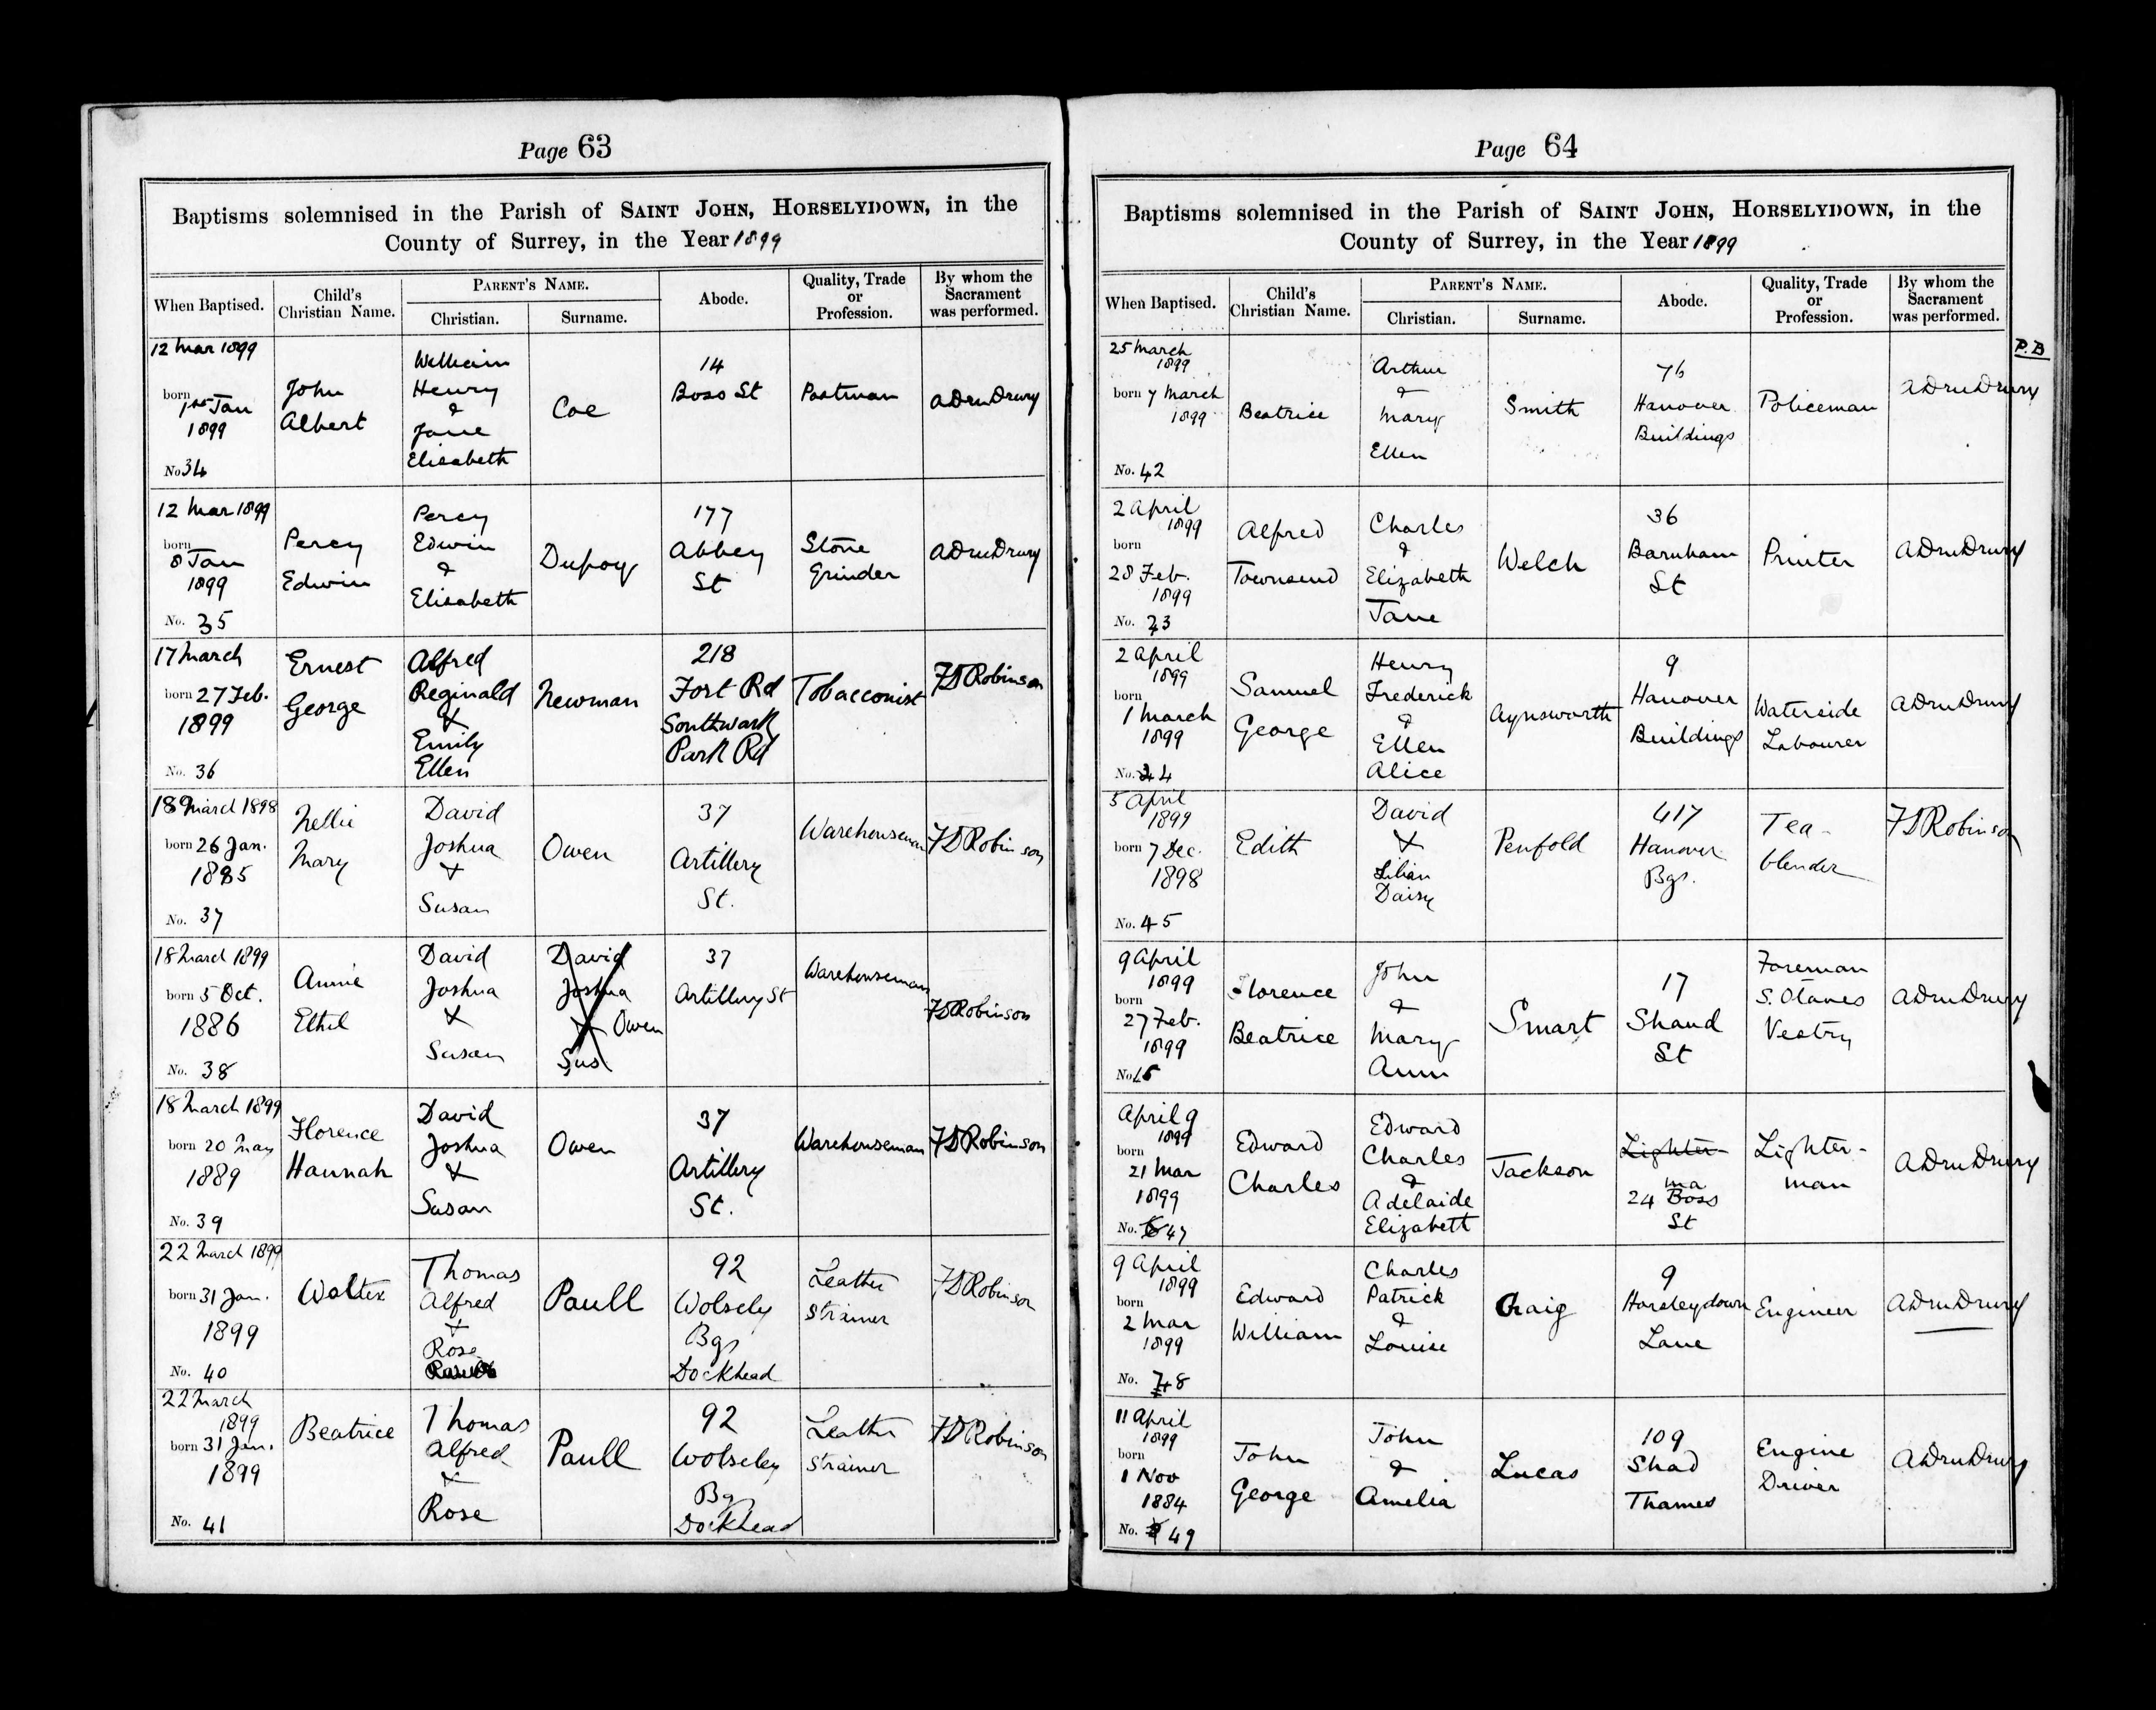 Page 63
Baptisms solemnised in the Parish of SAINT JOHN, HORSELYDOWN, in the
County of Surrey, in the Year 1899
When Baptised.
Child's
Christian Name.
PARENT'S NAME.
Christian.
Surname.
Abode.
Quality, Trade
or
Profession.
By whom the
Sacrament
was performed.
12 Mar 1899
born
1st Jan
1899
No 34
John
Albert
William
Henry
&
Jane
Elisabeth
Coe
14
Boss St
Postman
ADruDrury
12 Mar 1899
born
8 Jan
1899
No. 35
Percy
Edwin
Percy
Edwin
&
Elisabeth
Dupoy
177
Abbey
St
Stone
Grinder
ADruDrury
17 March
born 27 Feb.
1899
No. 36
Ernest
George
Alfred
Reginald
&
Emily
Ellen
Newman
218
Fort Rd
Southwark
Park Rd
Tobacconist
FSRobinson
18 March 1898
born 26 Jan.
1885
No. 37
Nellie
Mary
David
Joshua
&
Susan
Owen
37
Artillery
St.
Warehouseman
FSRobinson
18 March 1899
born 5 Oct.
1886
No. 38
Annie
Ethel
David
Joshua
&
Susan
David
Joshua
& Owen
Sus
37
Artillery St
Warehouseman
FSRobinson
18 March 1899
born 20 May
1889
No. 39
Florence
Hannah
David
Joshua
&
Susan
Owen
37
Artillery
St.
Warehouseman
FSRobinson
22 March 1899
born 31 Jan.
1899
No. 40
Walter
Thomas
Alfred
&
Rose
Paull
92
Wolsely
Bgs
Dockhead
Leather
Strainer
FSRobinson
22 March
1899
born 31 Jan.
1899
No. 41
Beatrice
Thomas
Alfred
&
Rose
Paull
92
Wolseley
Bg
Dockhead
Leather
Strainer
FSRobinson
Page 64
Baptisms solemnised in the Parish of SAINT JOHN, HORSELYDOWN, in the
County of Surrey, in the Year 1899
When Baptised.
Child's
Christian Name.
PARENT'S NAME.
Christian.
Surname.
Abode.
Quality, Trade
or
Profession.
By whom the
Sacrament
was performed.
P.B
25 March
1899
born 7 March
1899
No. 42
Beatrice
Arthur
&
Mary
Ellen
Smith
76
Hanover
Buildings
Policeman
ADruDrury
2 April
1899
born
28 Feb.
1899
No. 43
Alfred
Townsend
Charles
&
Elizabeth
Jane
Welch
36
Barnham
St
Printer
ADruDrury
2 April
1899
born
1 March
1899
No. 44
Samuel
George
Henry
Frederick
&
Ellen
Alice
Aynsworth
9
Hanover
Buildings
Waterside
Labourer
ADruDrury
5 April
1899
born 7 Dec.
1898
No. 45
Edith
David
&
Lilian
Daisy
Penfold
417
Hanover
Bgs.
Tea-
blender
FSRobinson
9 April
1899
born
27 Feb.
1899
No.
Florence
Beatrice
John
&
Mary
Ann
Smart
17
Shand
St
Foreman
S. Olaves
Vestry
ADruDrury
April 9
1899
born
21 Mar
1899
No. 47
Edward
Charles
Edward
Charles
&
Adelaide
Elizabeth
Jackson
Lighter-
ma
24 Boss
St
Lighter-
man
ADruDrury
9 April
1899
born
2 Mar
1899
No. 48
Edward
William
Charles
Patrick
&
Louise
Craig
9
Horsleydown
Lane
Engineer
ADruDrury
11 April
1899
born
1 Nov
1884
No. 49
John
George
John
&
Amelia
Lucas
109
Shad
Thames
Engine
Driver
ADruDrury